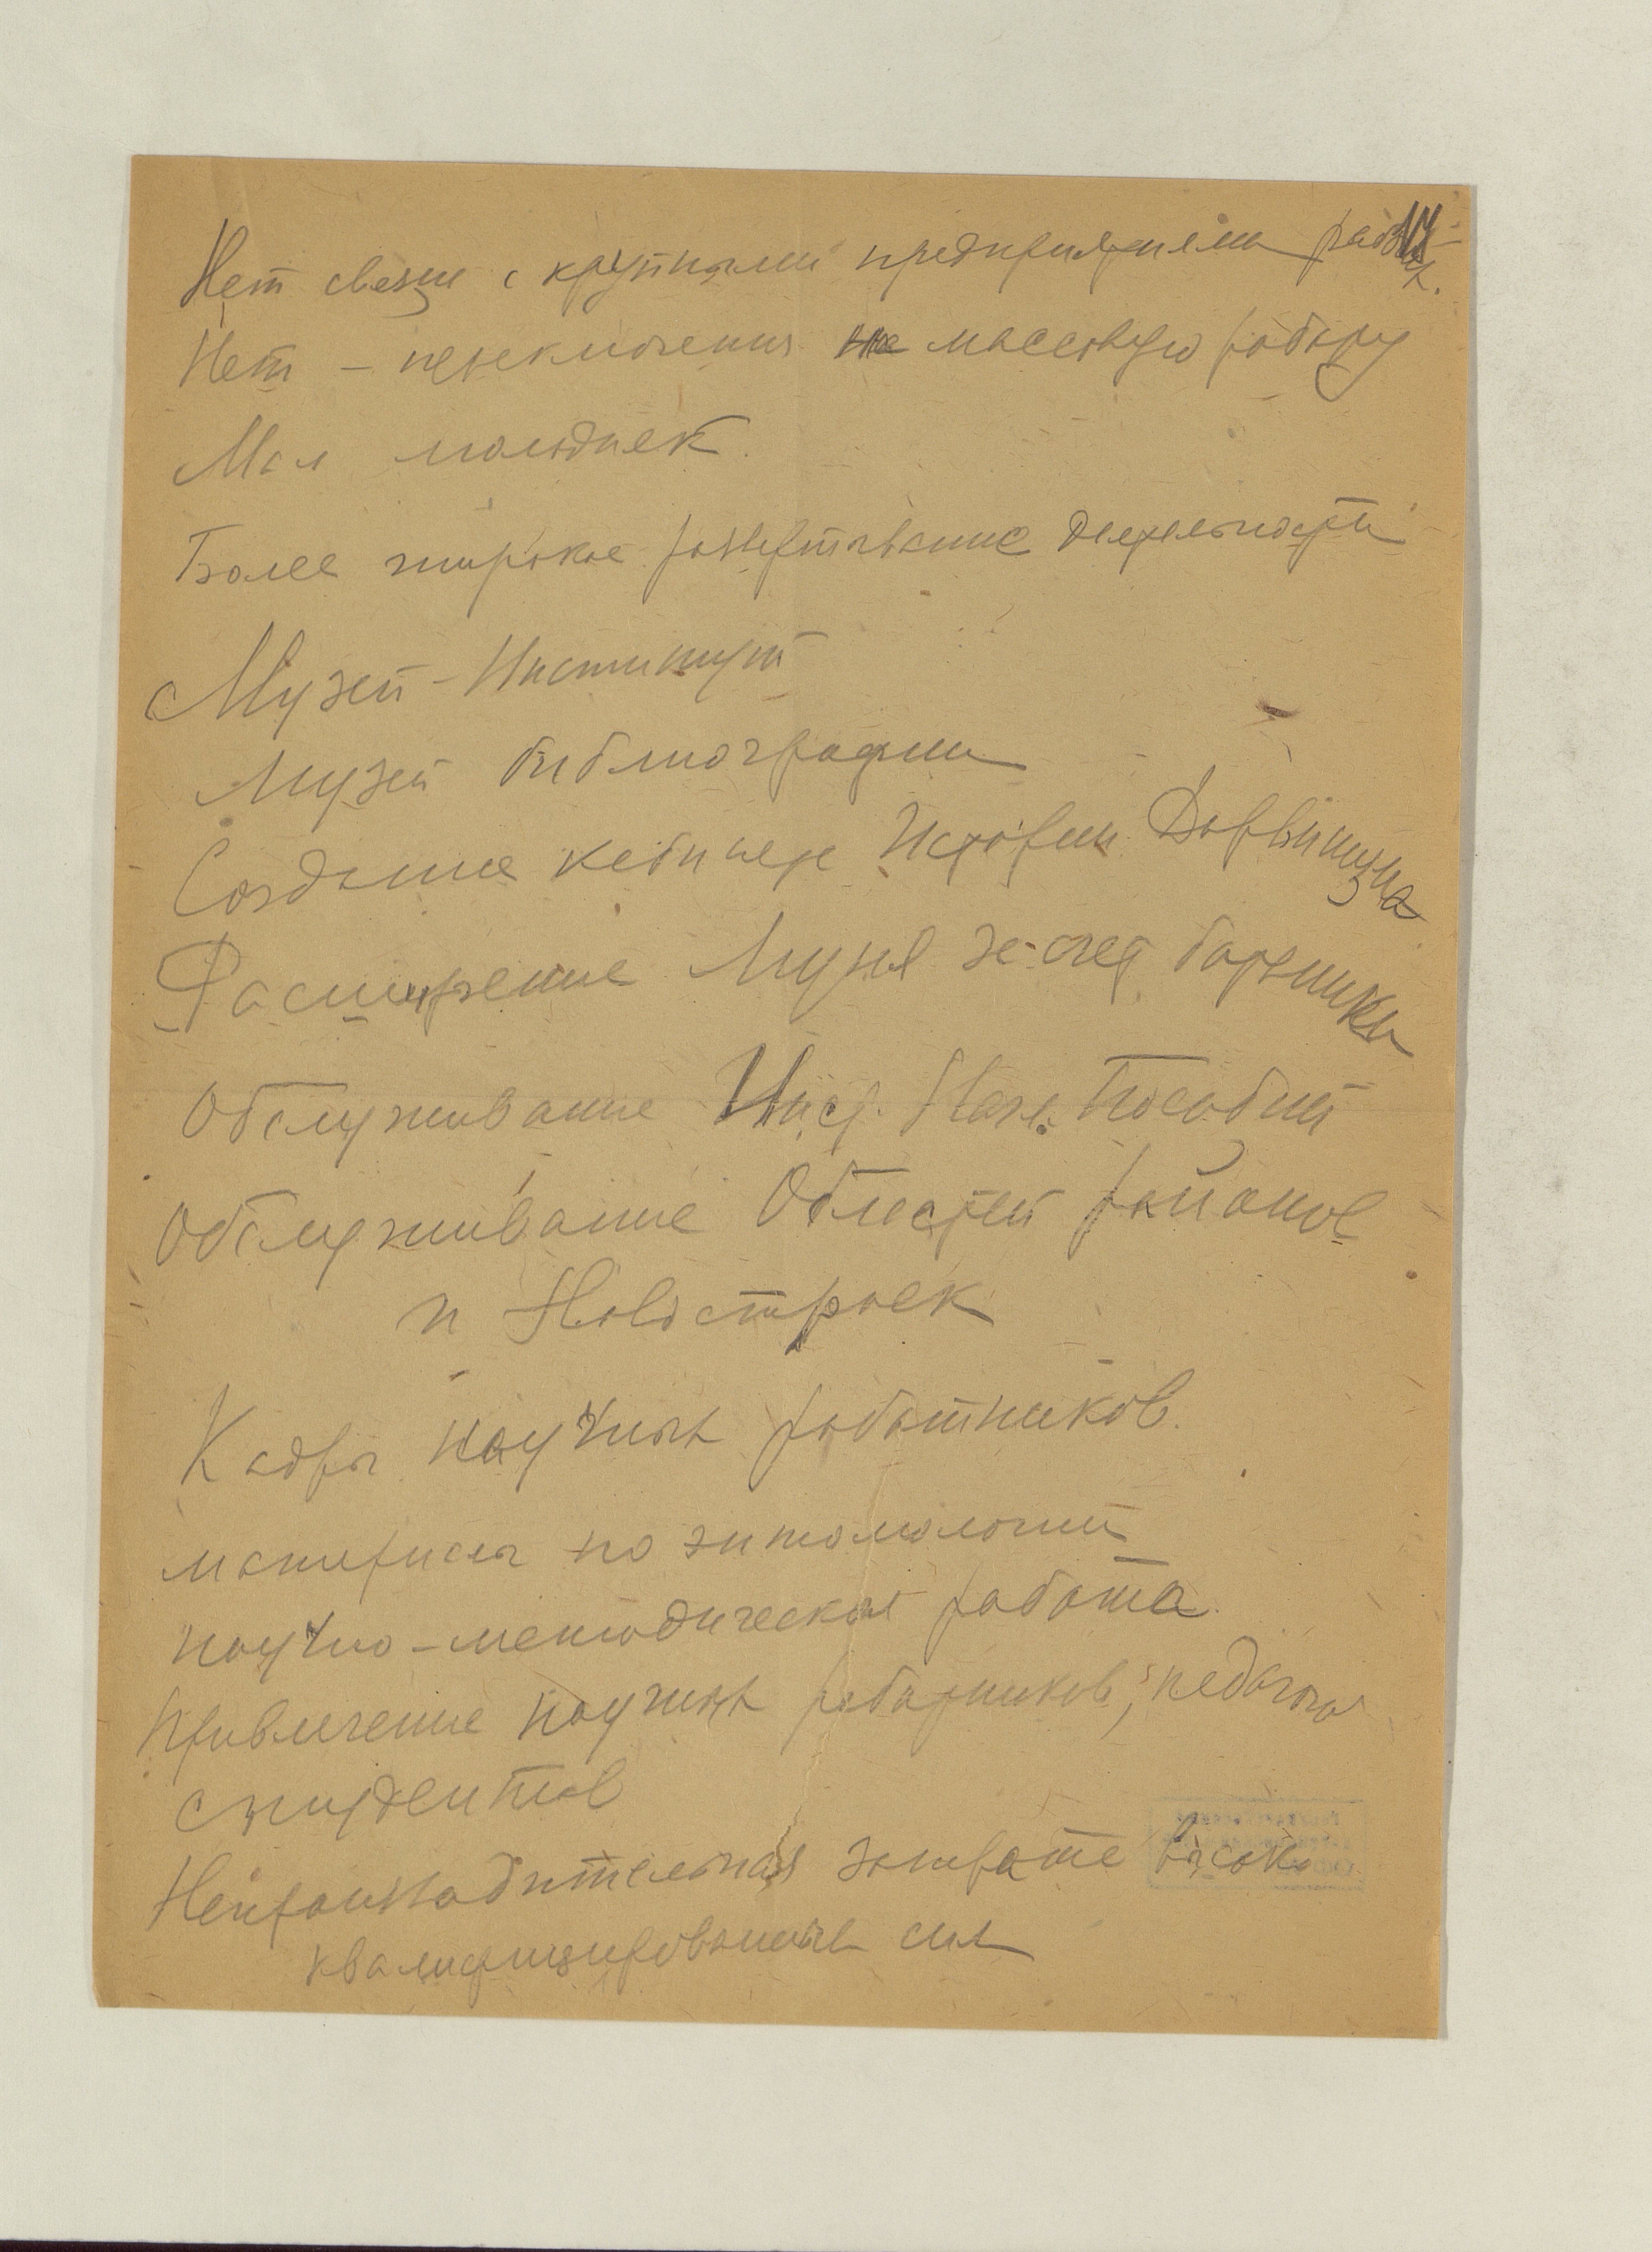 Нет связи с крупными предприятиями
Нет – переключения на массовую работу
Мал молодняк
Более широкое развертывание деятельности
Музей – Институт
Музей библиографии
Создание кабинета Истории Дарвинизма
Расширение Музея за счет
Обслуживание Инст. Нагл. Пособий
Обслуживание Областей районов
и Новостроек
Кадры научных работников.
материалы по энтомологии
научно – методическая работа
Привлечение научных работников, педагогов
студентов
затрата высоко
квалифицированных сил